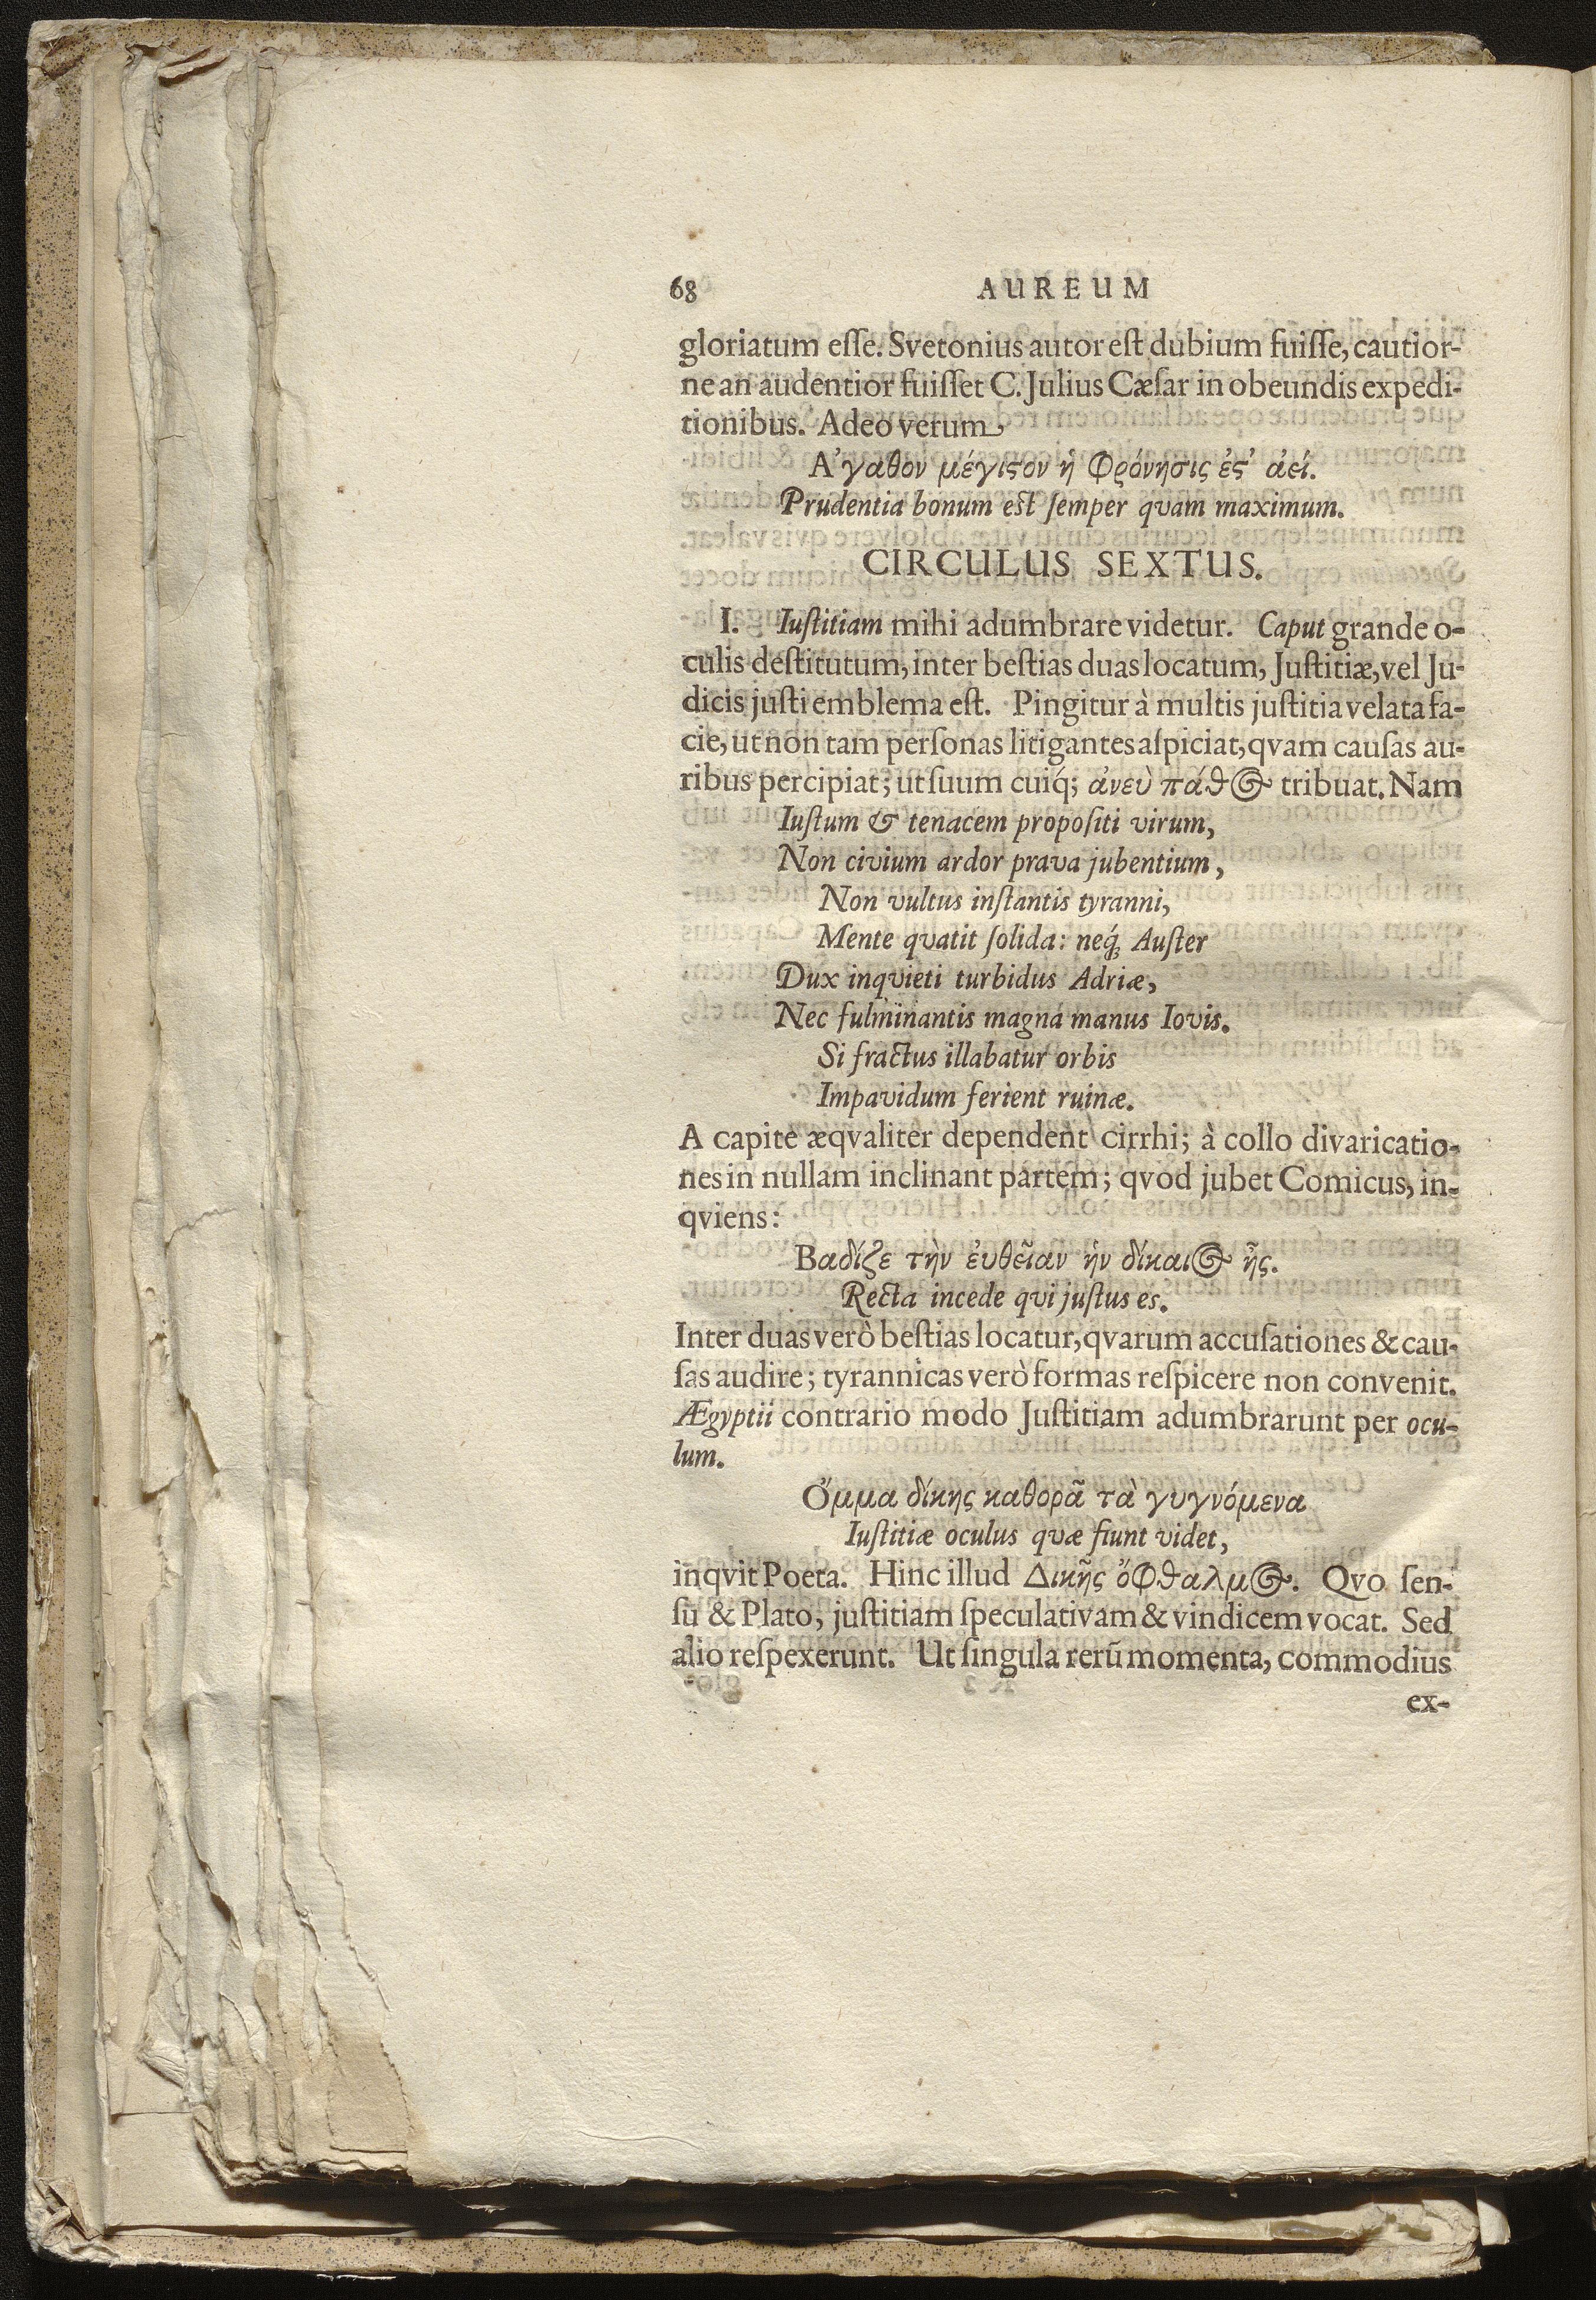 68 AUREUM
gloriatum eſſe. Svetonius autor eſt dubium fuiſſe, cautior-
ne an audentior fuiſſet C. Julius Cæſar in obeundis expedi-
tionibus. Adeo verum
Α᾽γαθον μέγιϛον ἡ φρόνησις ἐϛ᾽ ἀεί.
Prudentia bonum eſt ſemper qvam maximum.
CIRCULUS SEXTUS.
I. Iuſtitiam mihi adumbrare videtur. Caput grande o-
culis deſtitutum, inter beſtias duas locatum, Juſtitiæ, vel Ju-
dicis juſti emblema eſt. Pingitur à multis juſtitia velata fa-
cie, ut non tam perſonas litigantes aſpiciat, qvam cauſas au-
ribus percipiat; ut ſuum cuiq́; ἀνεὺ πάθȣς tribuat. Nam
Iuſtum & tenacem propoſiti virum,
Non civium ardor prava jubentium,
Non vultus inſtantis tyranni,
Mente qvatit ſolida: neq́; Auſter
Dux inqvieti turbidus Adriæ,
Nec fulminantis magna manus Iovis.
Si fractus illabatur orbis
Impavidum ferient ruinæ.
A capite æqvaliter dependent cirrhi; à collo divaricatio-
nes in nullam inclinant partem; qvod jubet Comicus, in-
qviens:
Βαδίζε τὴν ἐυθεῖαν ἡν δίκαιος ᾖς.
Recta incede qui juſtus es.
Inter duas verò beſtias locatur, qvarum accuſationes & cau-
ſas audire; tyrannicas verò formas reſpicere non convenit.
Ægyptii contrario modo Juſtitiam adumbrarunt per ocu-
lum.
Ὄμμα δίκης καθορᾶ τὰ γυγνόμενα
Iuſtitiæ oculus qvæ fiunt videt,
inqvit Poeta. Hinc illud Δικῆς ὄφθαλμος. Qvo ſen-
ſu & Plato, juſtitiam ſpeculativam & vindicem vocat. Sed
alio reſpexerunt. Ut ſingula rerū momenta, commodius
ex-